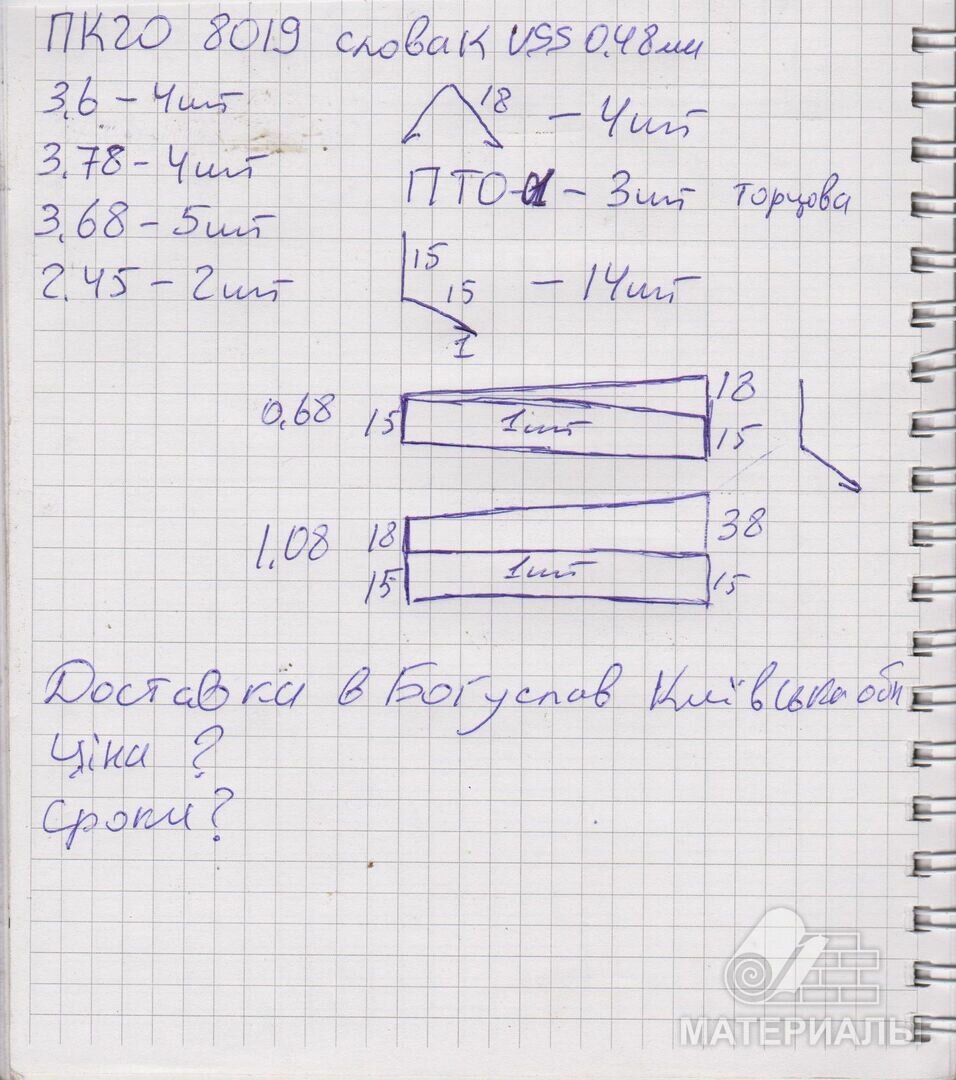 ПК20 8019 словак USS 0.48мм
3,6 - 4шт
18 - 4шт
3.78 - 4шт
ПТО-1 - 3шт торцова
3,68 - 5шт
15
15 - 14шт
2.45 - 2шт
1
0,68 15 1шт 18
15
1,08 18 38
15 1шт 15
Доставка в Богуслав Київська обл
Ціна ?
Сроки?
МАТЕРИАЛЫ